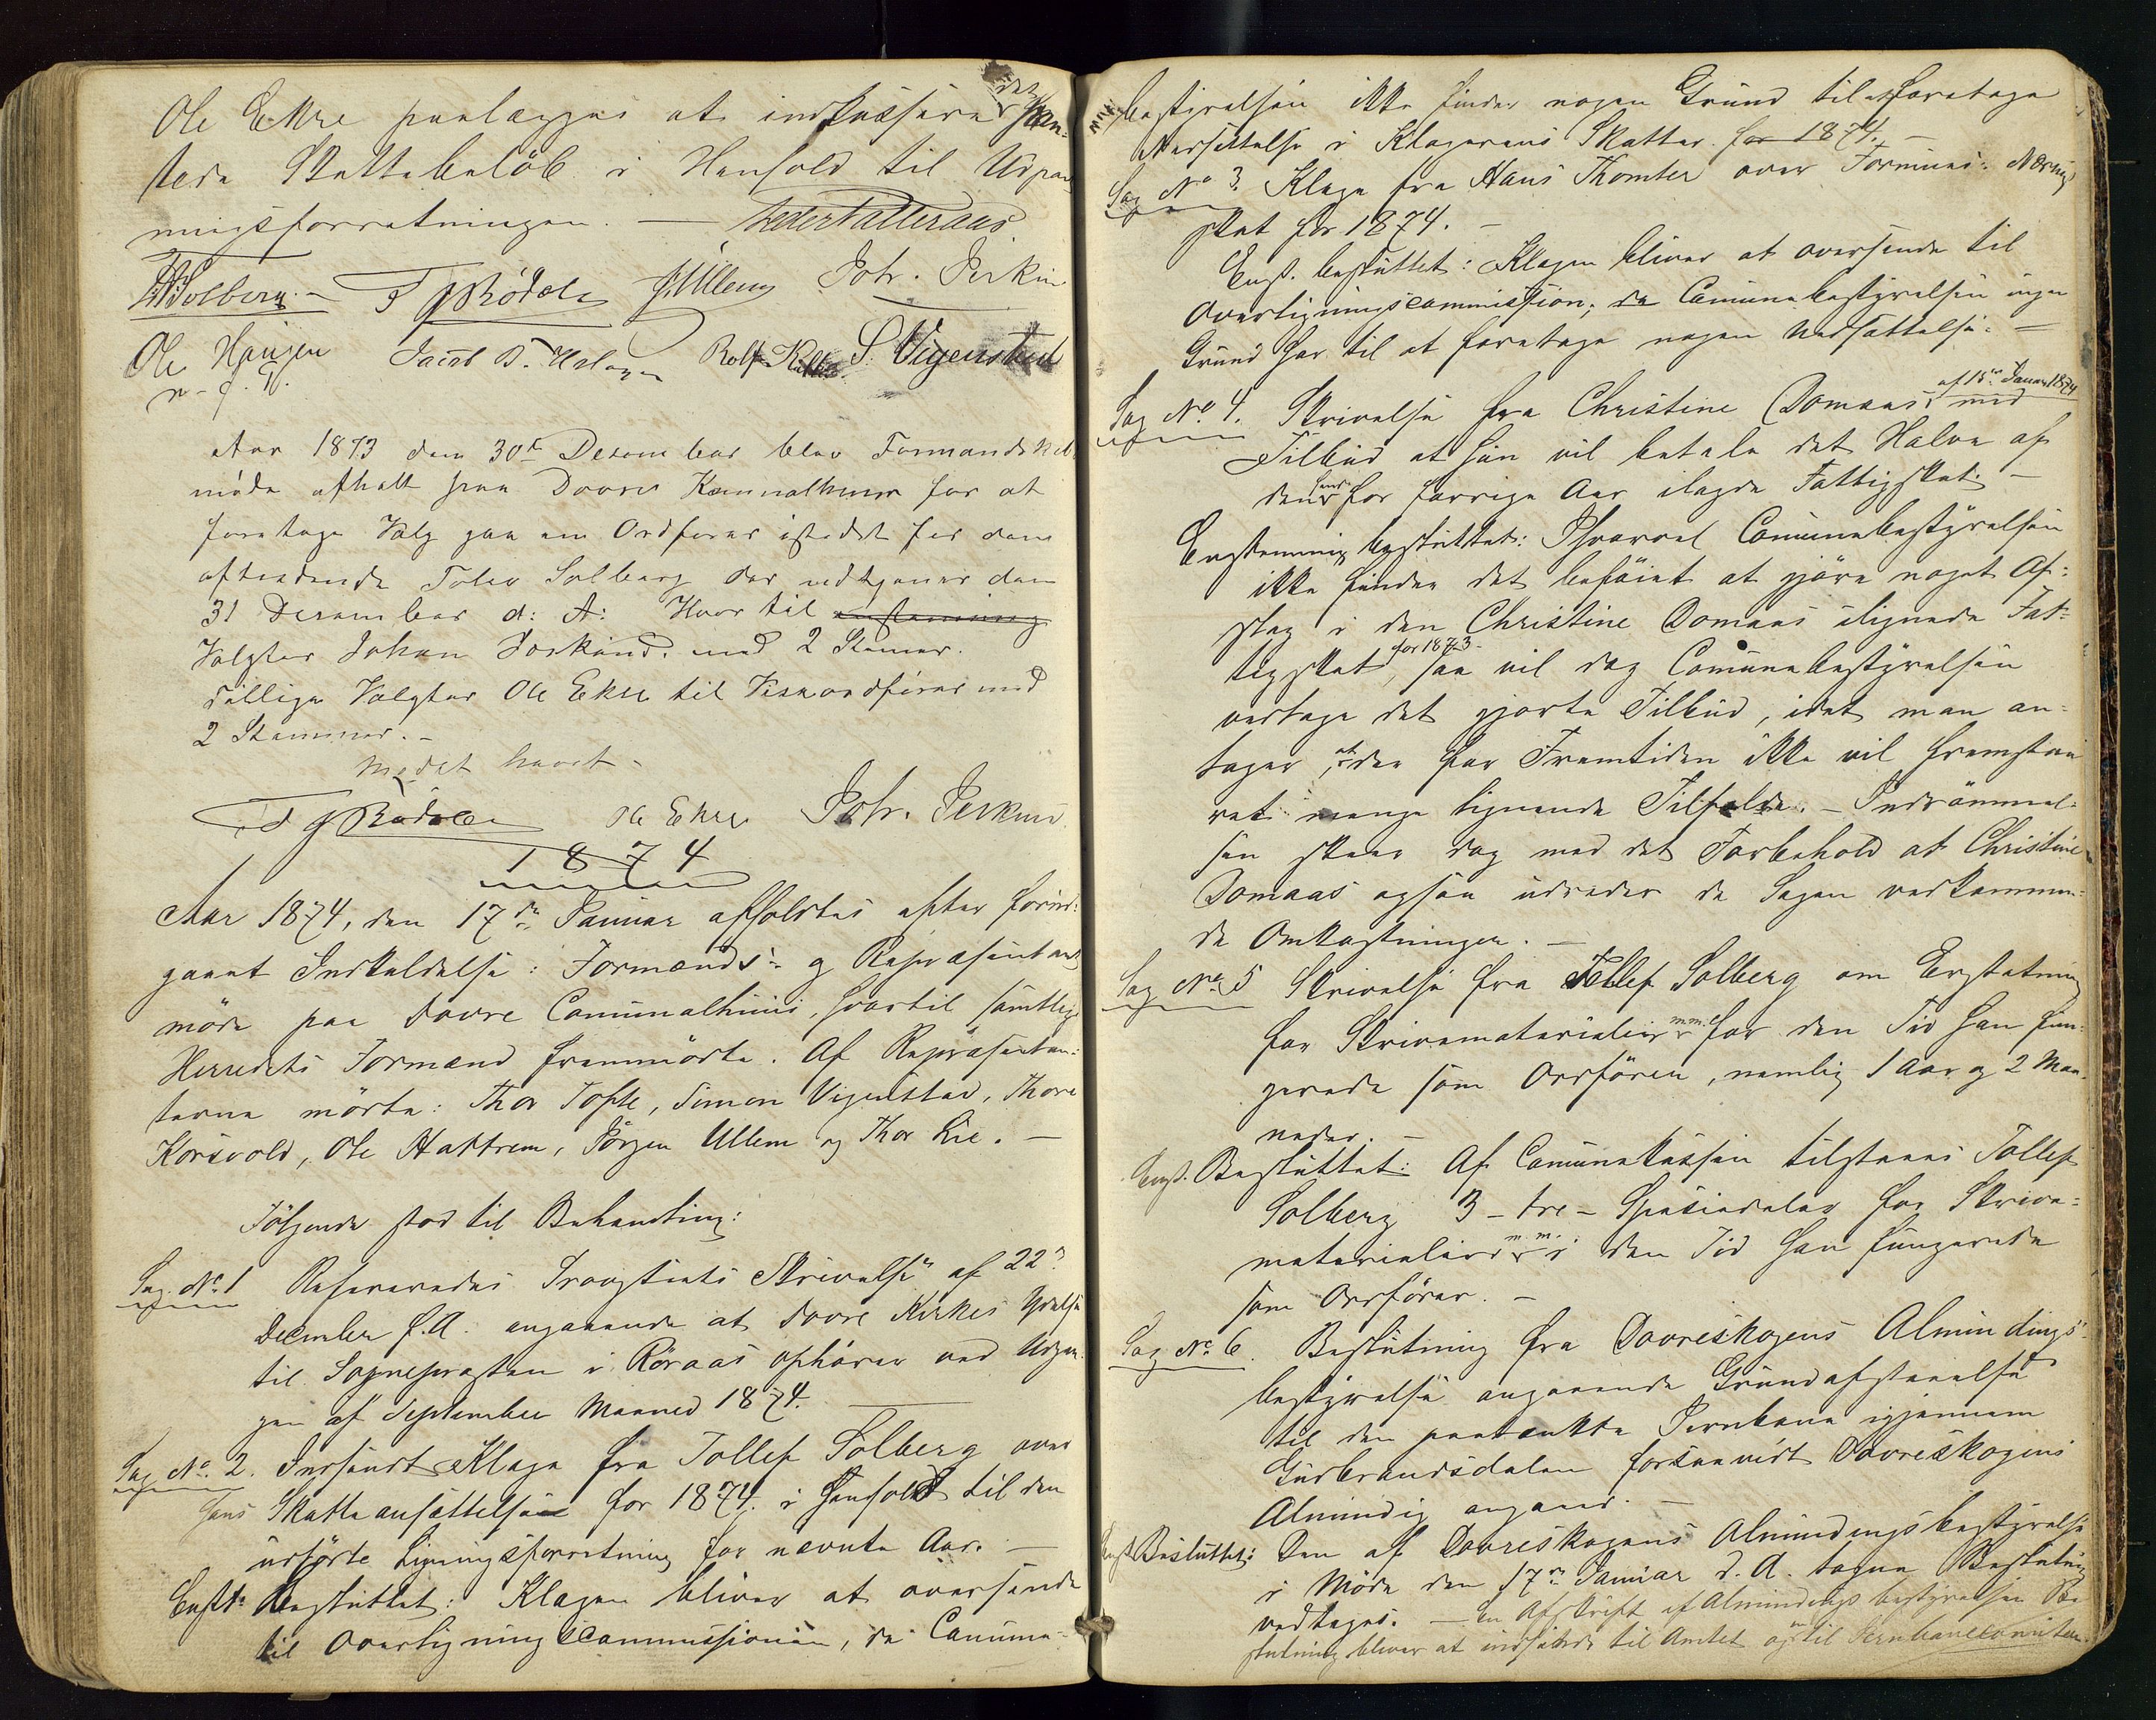 Ole Ekre paalægges at indkassere det skan-
tede Skattebeløb i Henhold til Udpan
ningsforretningen. — Peder Valleraas
T. Solberg. — T J Rødøle J. Ullem Joh. Jerkin
Ole Haugen Jacob D. Rolf S. Vigenstad
m. f. P.
Aar 1873 den 30te Desember blev Formandskab
møde afholt paa Dovre Kommunalhuus for at
foretage Valg paa en Ordfører istedet for den
aftredende Tolev Solberg der udtgener den
31 Desember d: A: Hvor til enstemmig
Valgtes Johan Jerkind. med 2 Stemer.
Tillige Valgtes Ole Ekre til Viseordfører med
2 Stemmer. —
Mødet hævet —
T J Rødøle Ole Ekre Joh. Jerkind
1874
Aar 1874, den 17de Januar afholdtes efter forud-
gaaet Indkaldelse: Formænds- og Repræsentant
møde paa Dovre Comunalhuus, hvortil samtlige
Herredets Formænd fremmødte. Af Repræsentan-
terne mødte: Thor Tofte, Simon Vigenstad, Thore
Korsvold, Ole Hattrem, Jørgen Ullem og Thor Lie. —
Følgende stod til Behandling:
Sag No. 1 Refereredes Provstiets Skrivelse af 22n
December f. A. angaaende at Dovre Kirkes Ydelse
til Sognepræsten i Røraas ophører ved Udgan-
gen af September Maaned 1874.
Sag No. 2. Indsendt Klage fra Tollef Solberg over
hans Skatteansættelse for 1874. i Henhold til den
udførte Ligningsforretning for nævnte Aar. —
Enst. Besluttet: Klagen bliver at oversende
til Overligningscommissionen, da Commune-
bestyrelsen ikke finder nogen Grund til at foretage
Nedsættelse i Klagerens Skatter for 1874. —
Sag No 3. Klage fra Hans Thomter over Formues- Nærings
skat for 1874. —
Enst. besluttet: Klagen bliver at oversende til
Overligningscommission; da Comunebestyrelsen ingen
Grund har til at foretage nogen Nedsættelse. —
Sag No. 4. Skrivelse fra Christine Domaas, af 15de Januar 1874 med
Tilbud at hun vil betale det Halve af
den hende for forrige Aar ilagde Fattigskat. —
Enstemmig besluttet: Ihvorvel Comunebestyrelsen
ikke finder det beføiet at gjøre noget Af-
slag i den Christine Domaas ilignede Fat-
tigskat for 1873, saa vil dog Comunebestyrelsen
vedtage det gjorte Tilbud, idet man an-
tager, at der for Fremtiden ikke vil fremstaa
ret mange lignende Tilfælde. — Indrømmel-
sen skeer dog med det Forbehold at Christine
Domaas ogsaa udreder de Sagen vedkommen-
de Omkostninger. —
Sag No. 5 Skrivelse fra Tollef Solberg om Erstatning
for Skrivematerialier m.m. for den Tid han fun-
gerede som Ordfører, nemlig 1 Aar og 2 Maa-
neder. —
Enst. Besluttet: Af Comunekassen tilstaaes Tollef
Solberg 3 - tre - Speciedaler for Skrive-
materialier m. m. i den Tid han fungerede
som Ordfører. —
Sag No. 6. Beslutning fra Dovreskogens Almindings-
bestyrelse angaaende Grundafstaaelse
til den paatænkte Jernbane igjennem
Gudbrandsdalen forsaavidt Dovreskogens
Alminding angaaer. —
Enst. Besluttet: Den af Dovreskogens Almindingsbestyrelse
i Møde den 17de Januar d. A. tagne Beslutning
vedtages. — En Afskrift af Almindings bestyrelsen Be
slutning bliver at indsende til Amtet og en til Jernbanecomiteen.